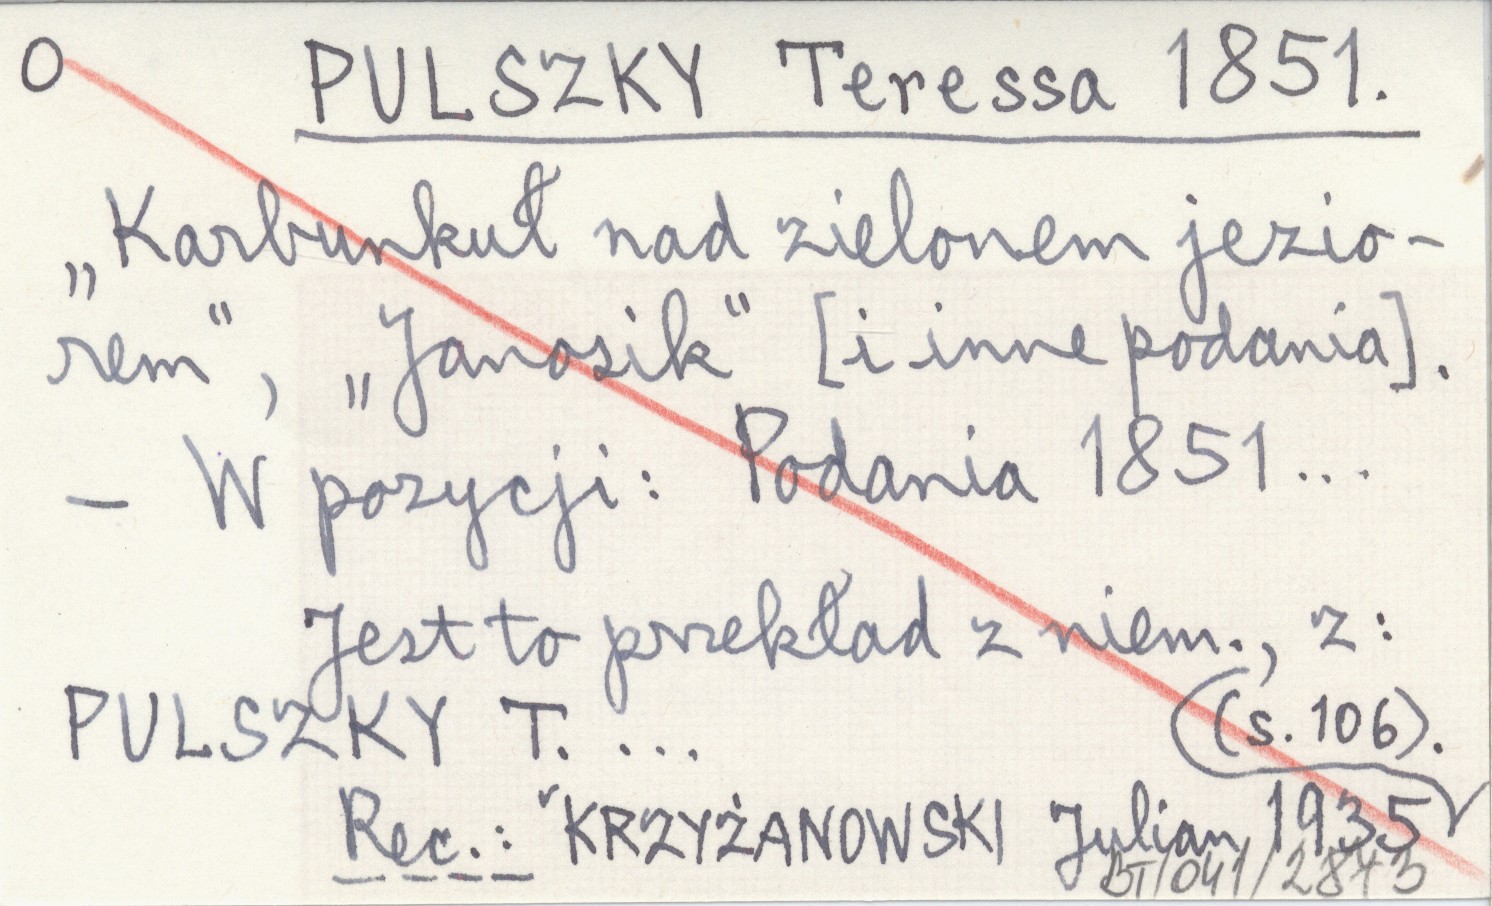 O PULSZKY Teressa 1851.
„Karbunkuł nad zielonem jezio-
rem“, „Janosik“ [i inne podania].
– W pozycji: Podania 1851...
Jest to przekład z niem., z:
PULSZKY T. ...
(s. 106).
Rec.: KRZYŻANOWSKI Julian 1935
BT/041/2873